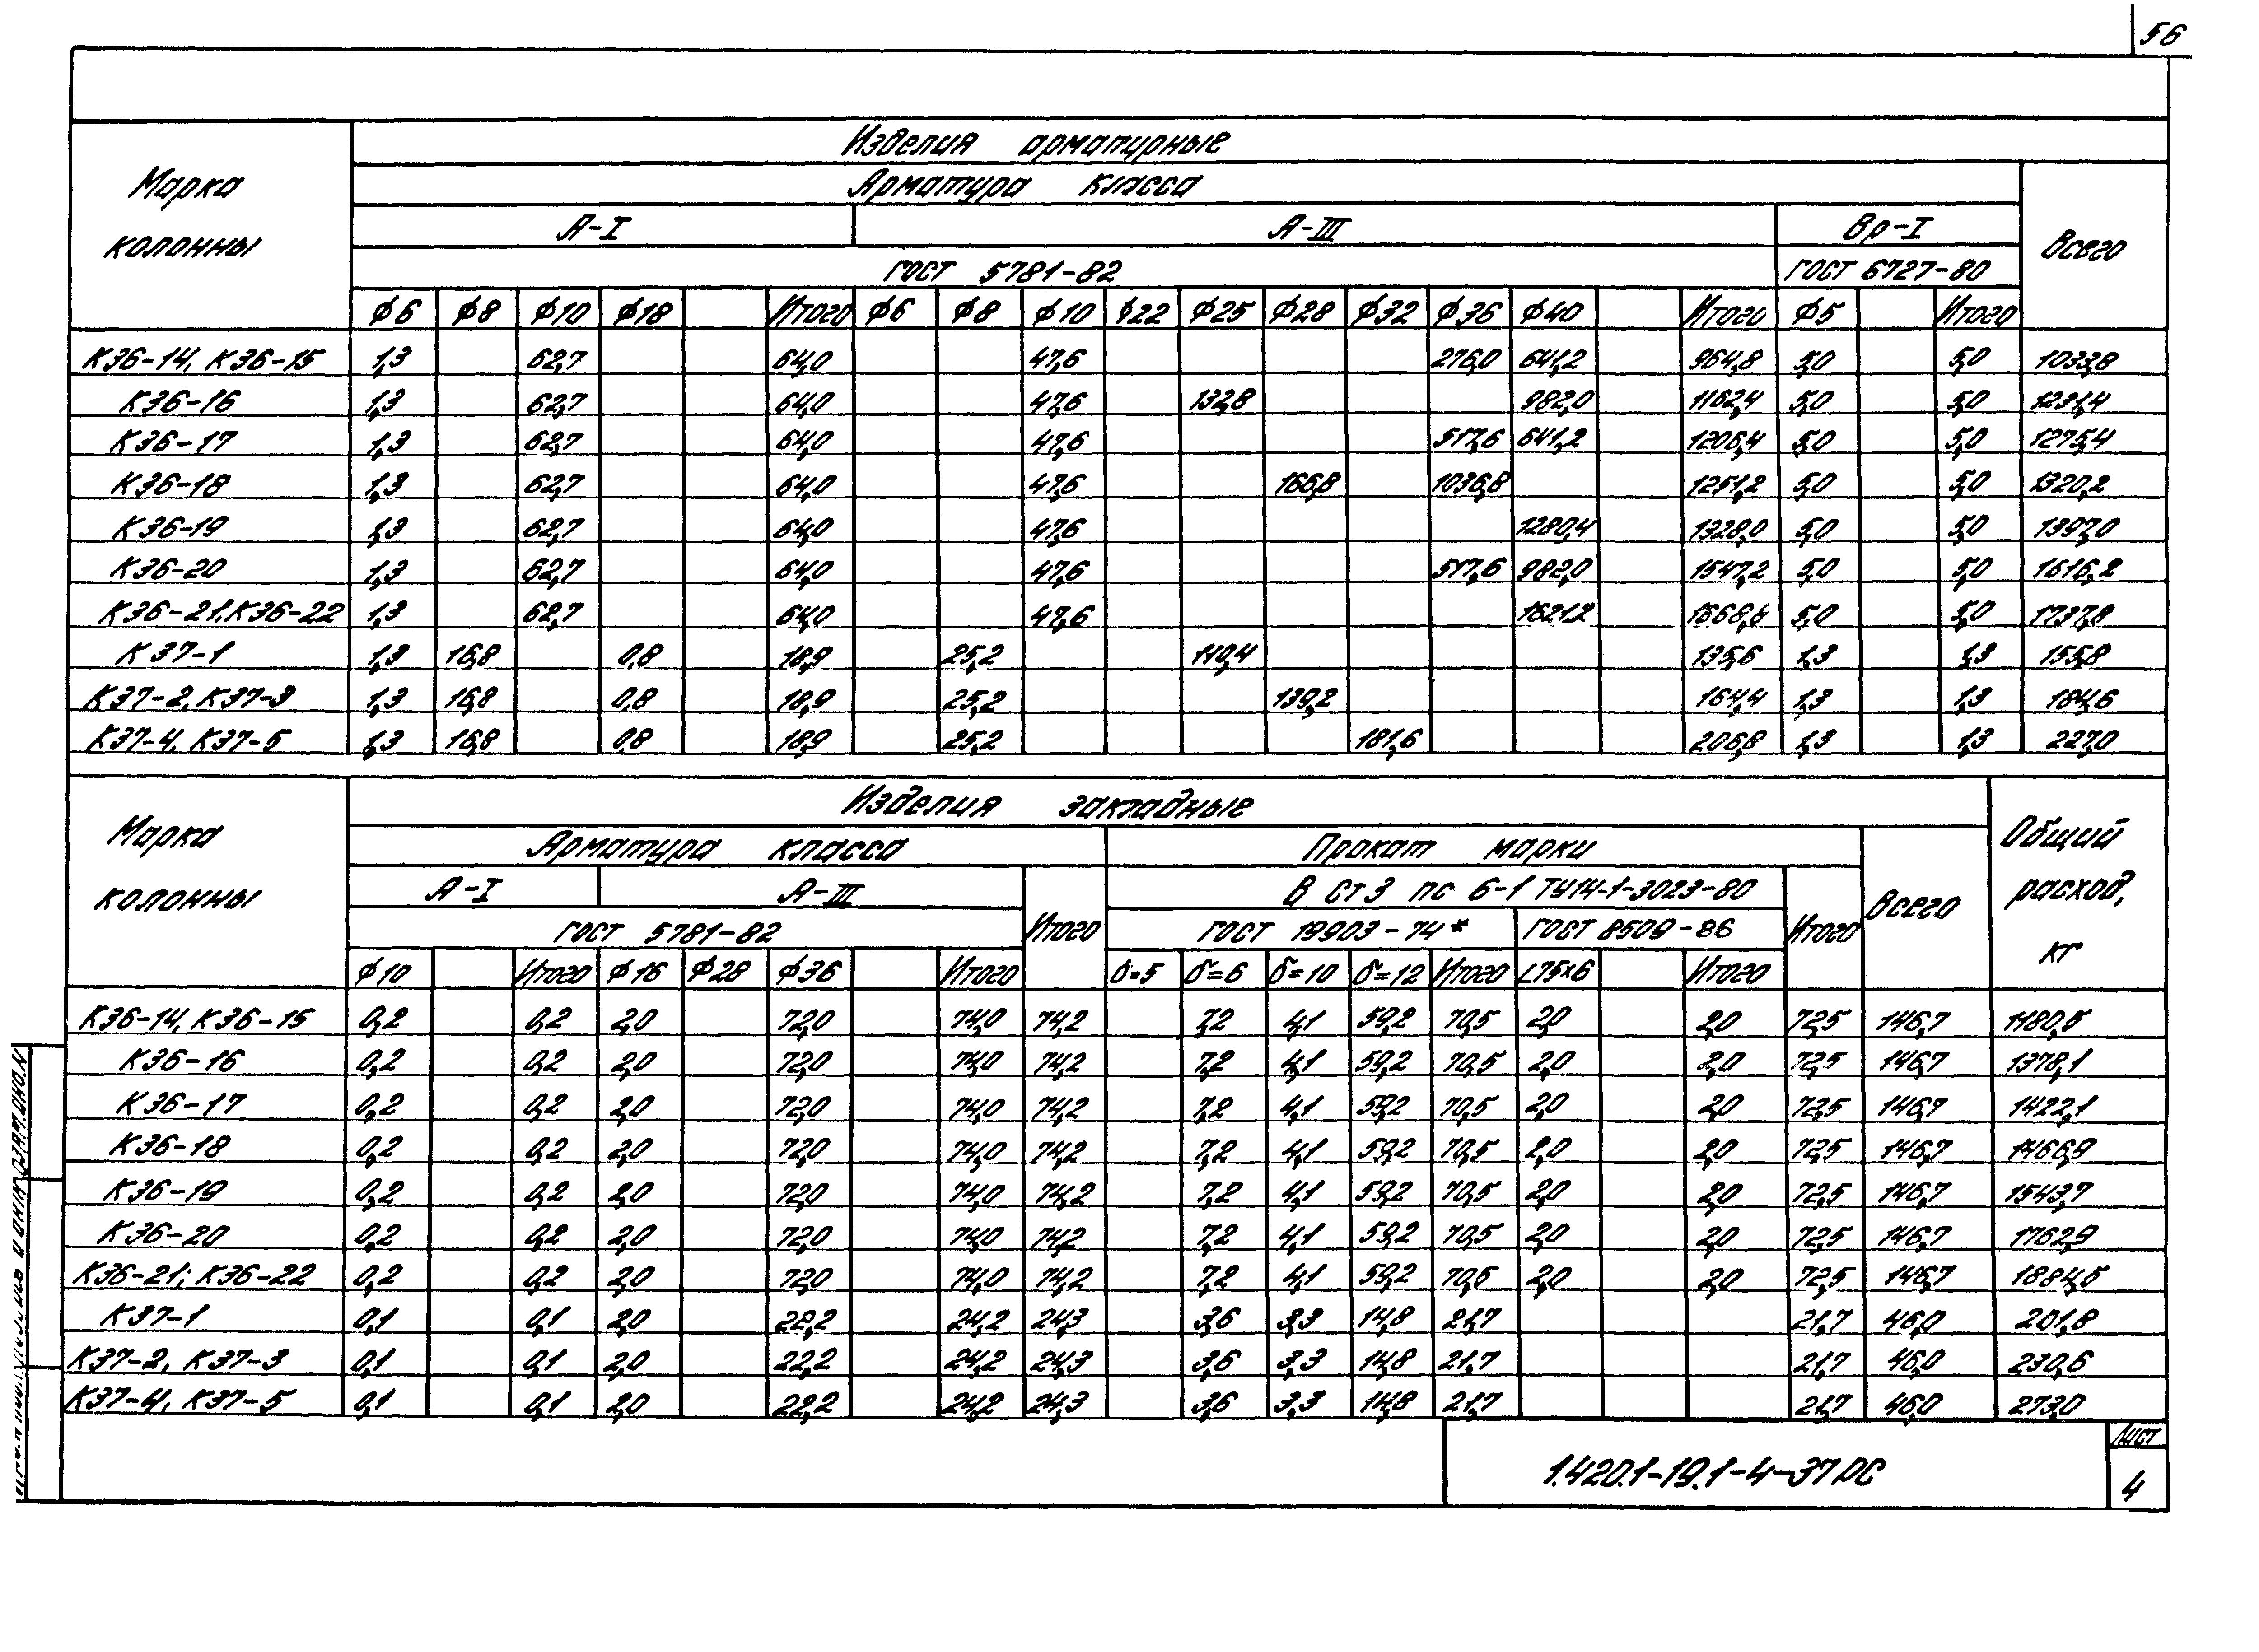 56
Изделия арматурные
Марка колонны
Арматура класса
Всего
А-I А-III Вр-I
ГОСТ 5781-82 ГОСТ 6727-80
ϕ6 ϕ8 ϕ10 ϕ18 Итого ϕ6 ϕ8 ϕ10 ϕ22 ϕ25 ϕ28 ϕ32 ϕ36 ϕ40 Итого ϕ5 Итого
К36-14, К36-15 1,3 62,7 64,0 47,6 276,0 641,2 964,8 5,0 5,0 1033,8
К36-16 1,3 62,7 64,0 47,6 132,8 982,0 1162,4 5,0 5,0 1231,4
К36-17 1,3 62,7 64,0 47,6 517,6 641,2 1206,4 5,0 5,0 1275,4
К36-18 1,3 62,7 64,0 47,6 166,8 1036,8 1251,2 5,0 5,0 1320,2
К36-19 1,3 62,7 64,0 47,6 1280,4 1328,0 5,0 5,0 1397,0
К36-20 1,3 62,7 64,0 47,6 517,6 982,0 1547,2 5,0 5,0 1616,2
К36-21, К36-22 1,3 62,7 64,0 47,6 1621,2 1668,8 5,0 5,0 1737,8
К37-1 1,3 16,8 0,8 18,9 25,2 110,4 135,6 1,3 1,3 155,8
К37-2, К37-3 1,3 16,8 0,8 18,9 25,2 139,2 164,4 1,3 1,3 184,6
К37-4, К37-5 1,3 16,8 0,8 18,9 25,2 181,6 206,8 1,3 1,3 227,0
Изделия закладные
Марка колонны
Общий расход, кг
Арматура класса Прокат марки
Всего
А-I А-III В Ст3 пс 6-1 ТУ14-1-3023-80
Итого Итого
ГОСТ 5781-82 ГОСТ 19903-74* ГОСТ 8509-86
ϕ10 Итого ϕ16 ϕ28 ϕ36 Итого δ=5 δ=6 δ=10 δ=12 Итого L75×6 Итого
К36-14, К36-15 0,2 0,2 2,0 72,0 74,0 74,2 7,2 4,1 59,2 70,5 2,0 2,0 72,5 146,7 1180,5
К36-16 0,2 0,2 2,0 72,0 74,0 74,2 7,2 4,1 59,2 70,5 2,0 2,0 72,5 146,7 1378,1
К36-17 0,2 0,2 2,0 72,0 74,0 74,2 7,2 4,1 59,2 70,5 2,0 2,0 72,5 146,7 1422,1
К36-18 0,2 0,2 2,0 72,0 74,0 74,2 7,2 4,1 59,2 70,5 2,0 2,0 72,5 146,7 1466,9
К36-19 0,2 0,2 2,0 72,0 74,0 74,2 7,2 4,1 59,2 70,5 2,0 2,0 72,5 146,7 1543,7
К36-20 0,2 0,2 2,0 72,0 74,0 74,2 7,2 4,1 59,2 70,5 2,0 2,0 72,5 146,7 1762,9
К36-21; К36-22 0,2 0,2 2,0 72,0 74,0 74,2 7,2 4,1 59,2 70,5 2,0 2,0 72,5 146,7 1884,5
К37-1 0,1 0,1 2,0 22,2 24,2 24,3 3,6 3,3 14,8 21,7 21,7 46,0 201,8
К37-2, К37-3 0,1 0,1 2,0 22,2 24,2 24,3 3,6 3,3 14,8 21,7 21,7 46,0 230,6
К37-4, К37-5 0,1 0,1 2,0 22,2 24,2 24,3 3,6 3,3 14,8 21,7 21,7 46,0 273,0
1.420.1-19.1-4-37РС
Лист
4